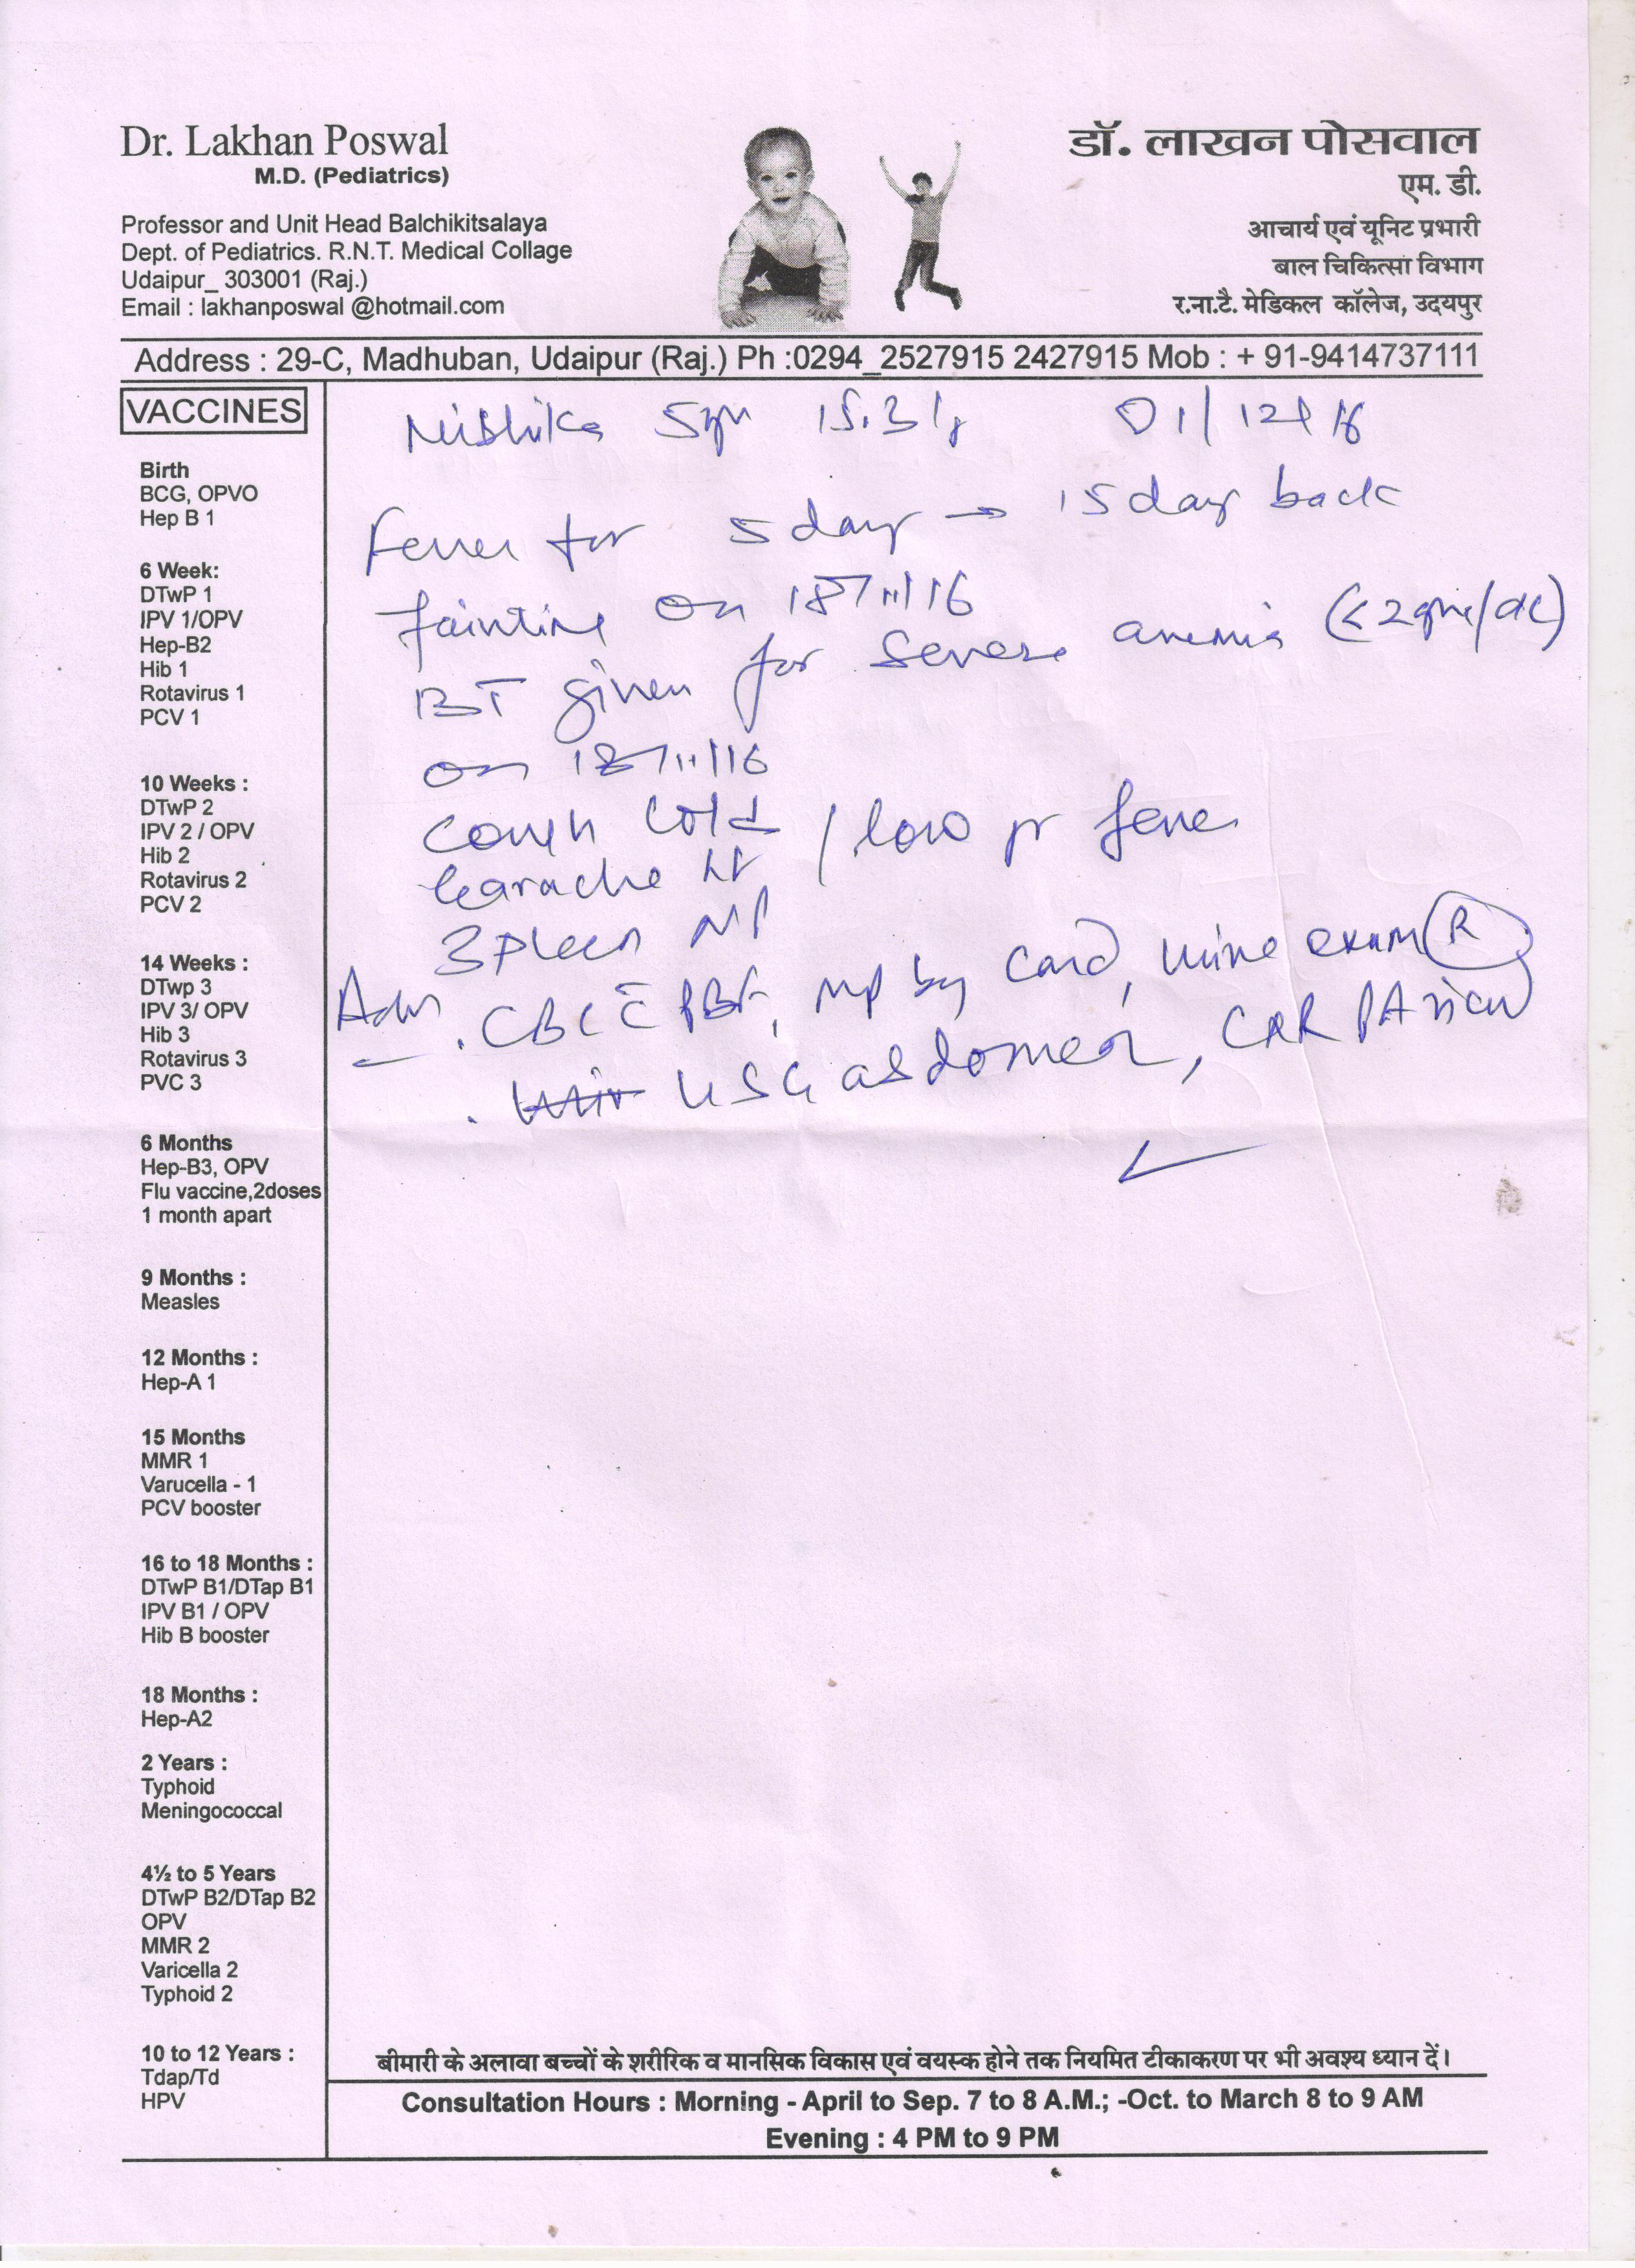 Dr. Lakhan Poswal
M.D. (Pediatrics)
Professor and Unit Head Balchikitsalaya
Dept. of Pediatrics. R.N.T. Medical Collage
Udaipur_ 303001 (Raj.)
Email : lakhanposwal @hotmail.com
डॉ. लाखन पोसवाल
एम. डी.
आचार्य एवं यूनिट प्रभारी
बाल चिकित्सा विभाग
र.ना.टै. मेडिकल कॉलेज, उदयपुर
Address : 29-C, Madhuban, Udaipur (Raj.) Ph :0294_2527915 2427915 Mob : + 91-9414737111
VACCINES
Birth
BCG, OPVO
Hep B 1
6 Week:
DTwP 1
IPV 1/OPV
Hep-B2
Hib 1
Rotavirus 1
PCV 1
10 Weeks :
DTwP 2
IPV 2 / OPV
Hib 2
Rotavirus 2
PCV 2
14 Weeks :
DTwp 3
IPV 3/ OPV
Hib 3
Rotavirus 3
PVC 3
6 Months
Hep-B3, OPV
Flu vaccine,2doses
1 month apart
9 Months :
Measles
12 Months :
Hep-A 1
15 Months
MMR 1
Varucella - 1
PCV booster
16 to 18 Months :
DTwP B1/DTap B1
IPV B1 / OPV
Hib B booster
18 Months :
Hep-A2
2 Years :
Typhoid
Meningococcal
4½ to 5 Years
DTwP B2/DTap B2
OPV
MMR 2
Varicella 2
Typhoid 2
10 to 12 Years :
Tdap/Td
HPV
Nishika 5yr 15.3 01/12/16
Fever for 5 day → 15 day back
fainting on 18/11/16
BT given for severe anemia (<2gm/dl)
on 18/11/16
Cough Cold / low gr fever
Earache Lt
Spleen NP
Adv . CBC c̄ PBF, MP by Card, urine exam R
. USG abdomen, CXR PA view
बीमारी के अलावा बच्चों के शरीरिक व मानसिक विकास एवं वयस्क होने तक नियमित टीकाकरण पर भी अवश्य ध्यान दें।
Consultation Hours : Morning - April to Sep. 7 to 8 A.M.; -Oct. to March 8 to 9 AM
Evening : 4 PM to 9 PM